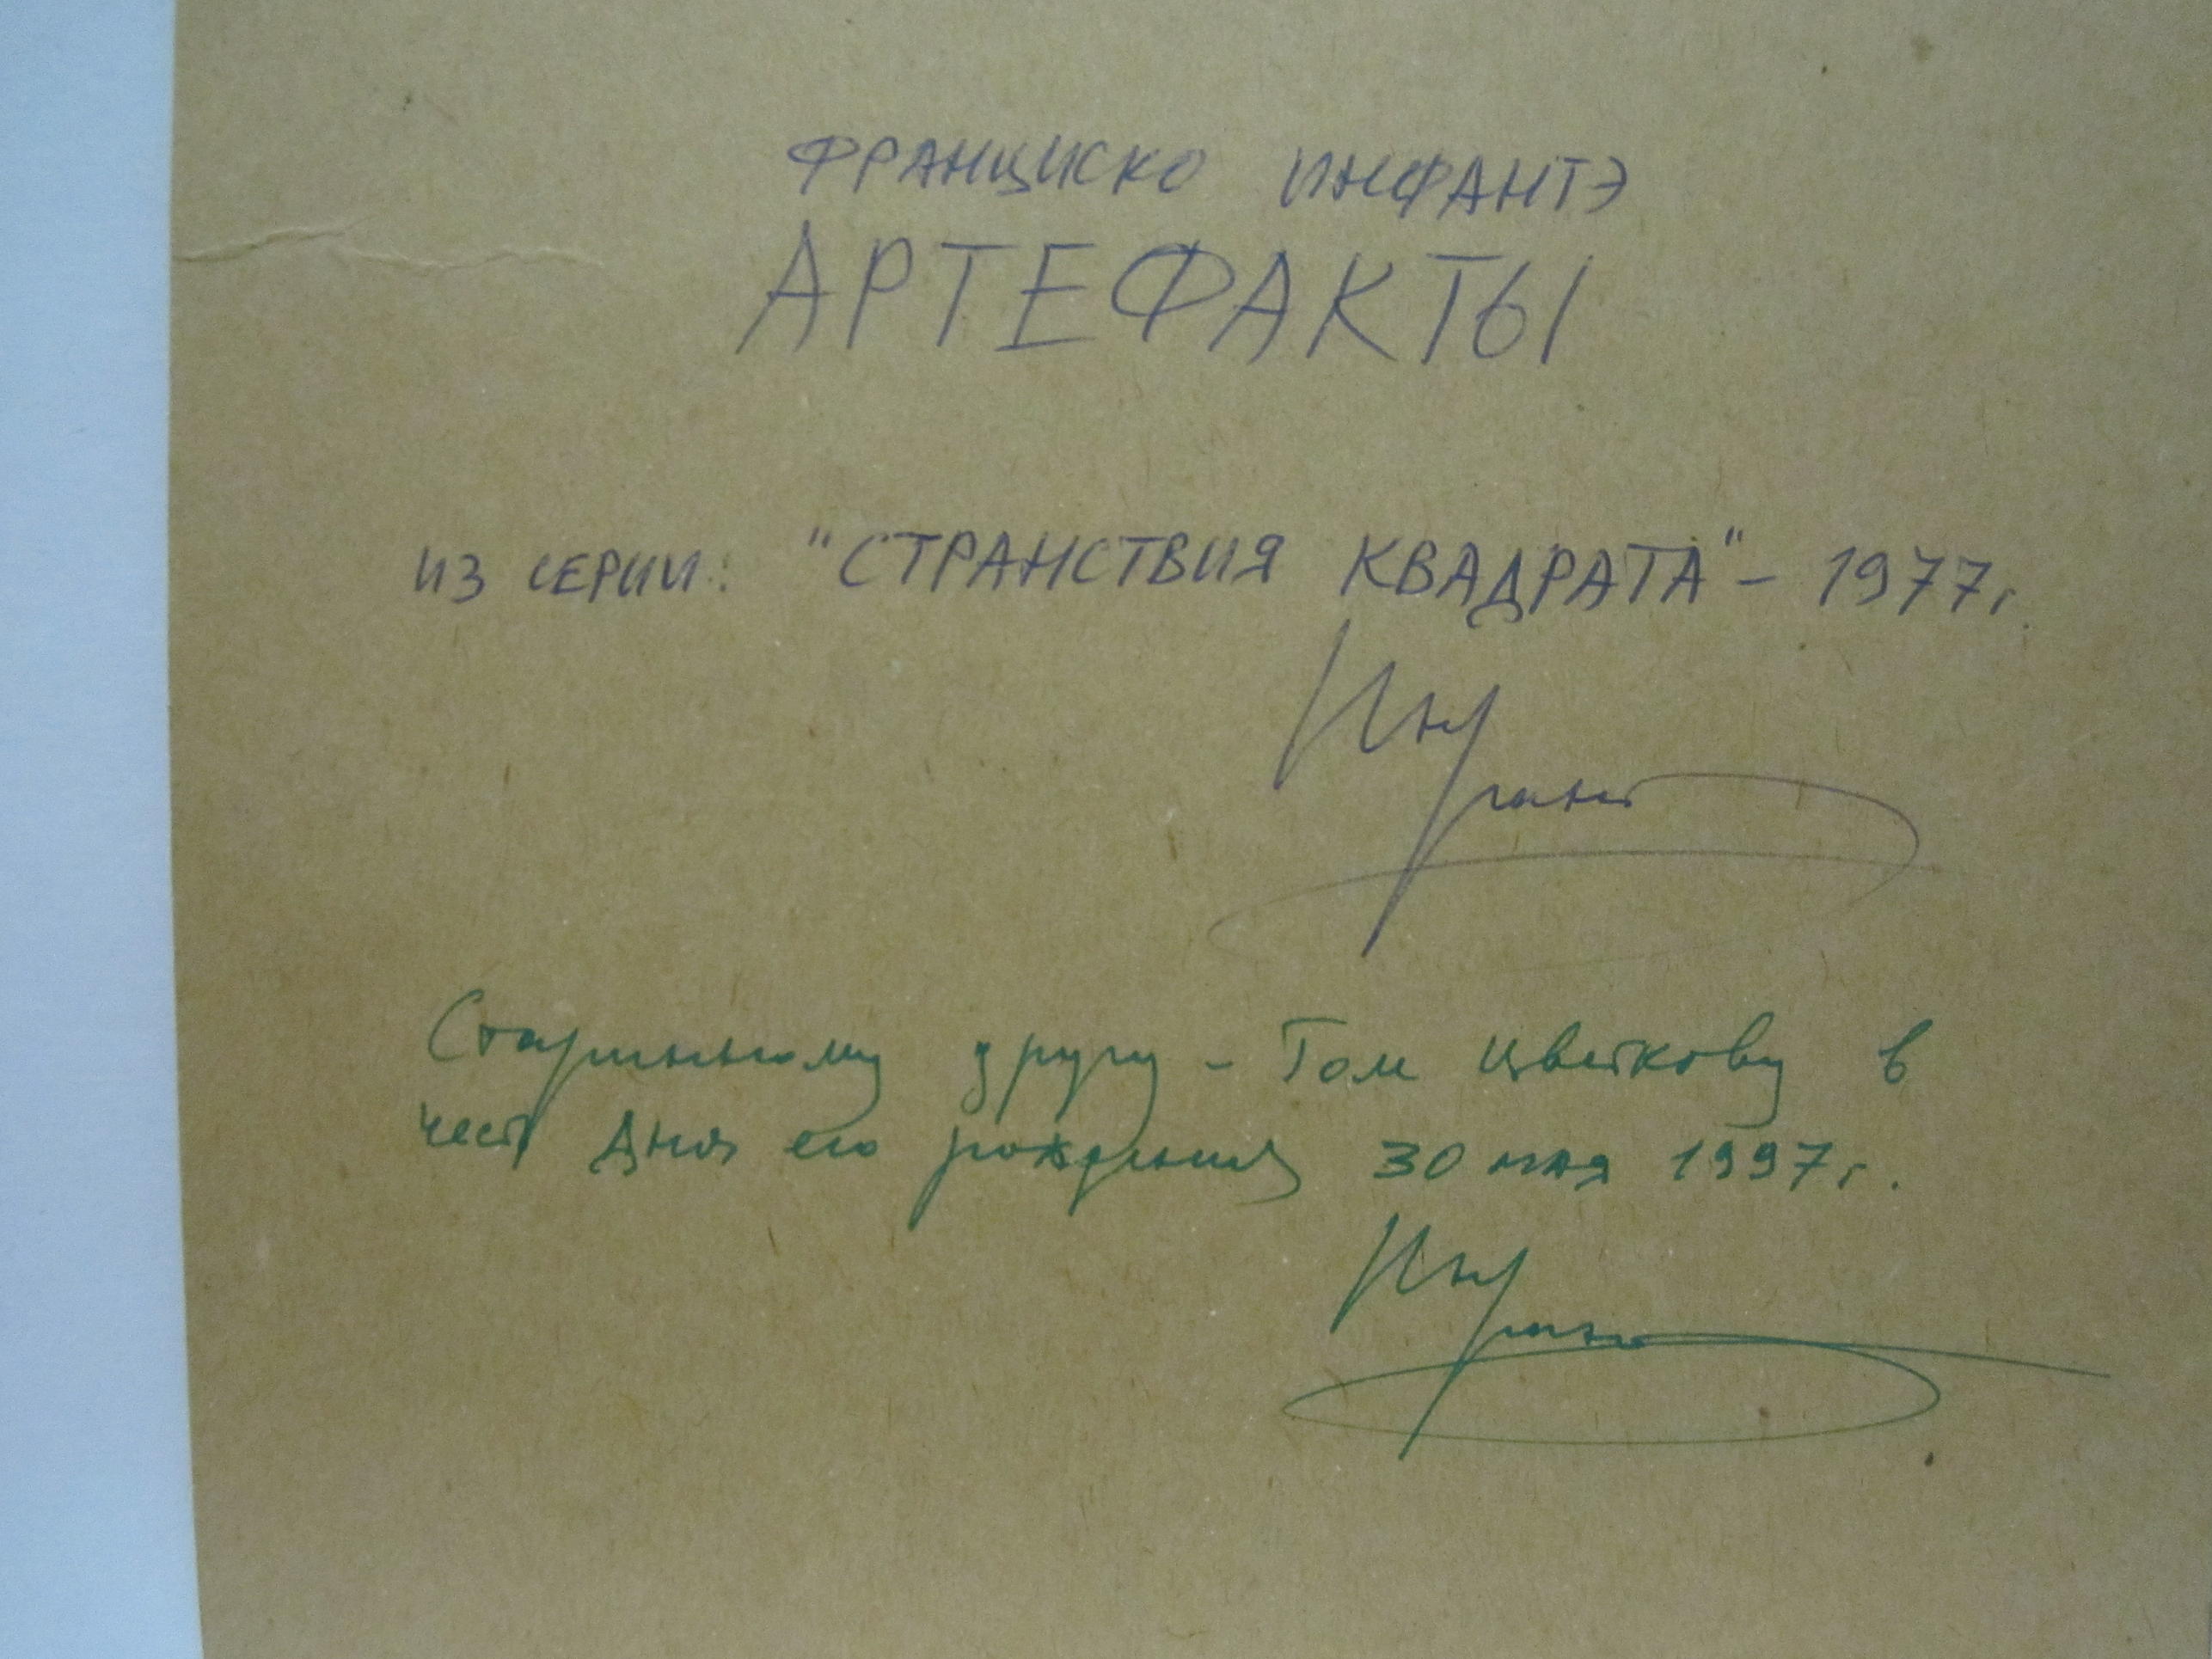 ФРАНЦИСКО ИНФАНТЭ
АРТЕФАКТЫ
ИЗ СЕРИИ: "СТРАНСТВИЯ КВАДРАТА" – 1977г.
Инфантэ
Старинному другу – Томе Цветкову в
честь Дня его рождения 30 мая 1997г.
Инфантэ